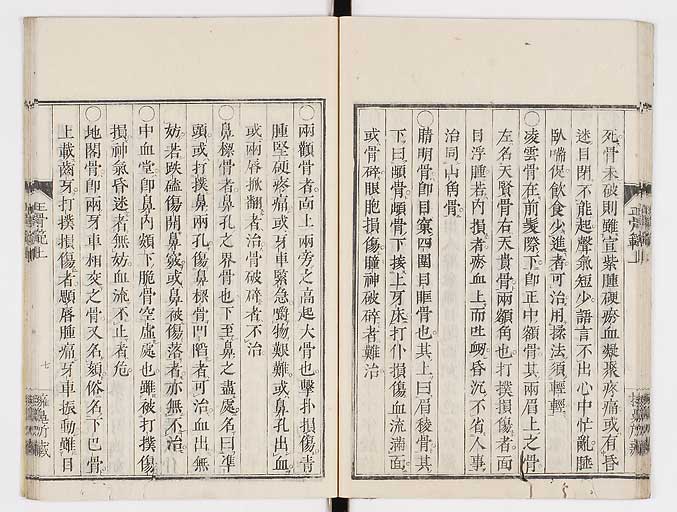 死骨未破則雖宣紫腫硬瘀血凝聚疼痛或有昏
迷目閉不能起聲氣短少語言不出心中忙亂睡
臥喘促飲食少進者可治用揉法須輕輕
〇凌雲骨在前髮際下卽正中額骨其兩眉上之骨
左名天賢骨右天貴骨兩額角也打撲損傷者面
目浮腫若內損者瘀血上而吐衂昏沉不省人事
治同山角骨
〇睛明骨卽目窠四圍目眶骨也其上曰眉稜骨其
下曰䪼骨䪼骨下接上牙床打仆損傷血流滿面
或骨碎眼胞損傷瞳神破碎者難治
〇兩顴骨者面上兩旁之高起大骨也擊扑損傷青
腫堅硬疼痛或牙車緊急嚼物艱難或鼻孔出血
或兩唇掀翻者治骨破碎者不治
〇鼻梁骨者鼻孔之界骨也下至鼻之盡處名曰準
頭或打撲鼻兩孔傷鼻梁骨凹陷者可治血出無
妨若跌磕傷開鼻竅或鼻被傷落者亦無不治
〇中血堂卽鼻內頞下脆骨空虛處也雖被打撲傷
損神氣昏迷者無妨血流不止者危
〇地閣骨卽兩牙車相交之骨又名頦俗名下巴骨
上載齒牙打撲損傷者腮唇腫痛牙車振動難目
正骨範上
七